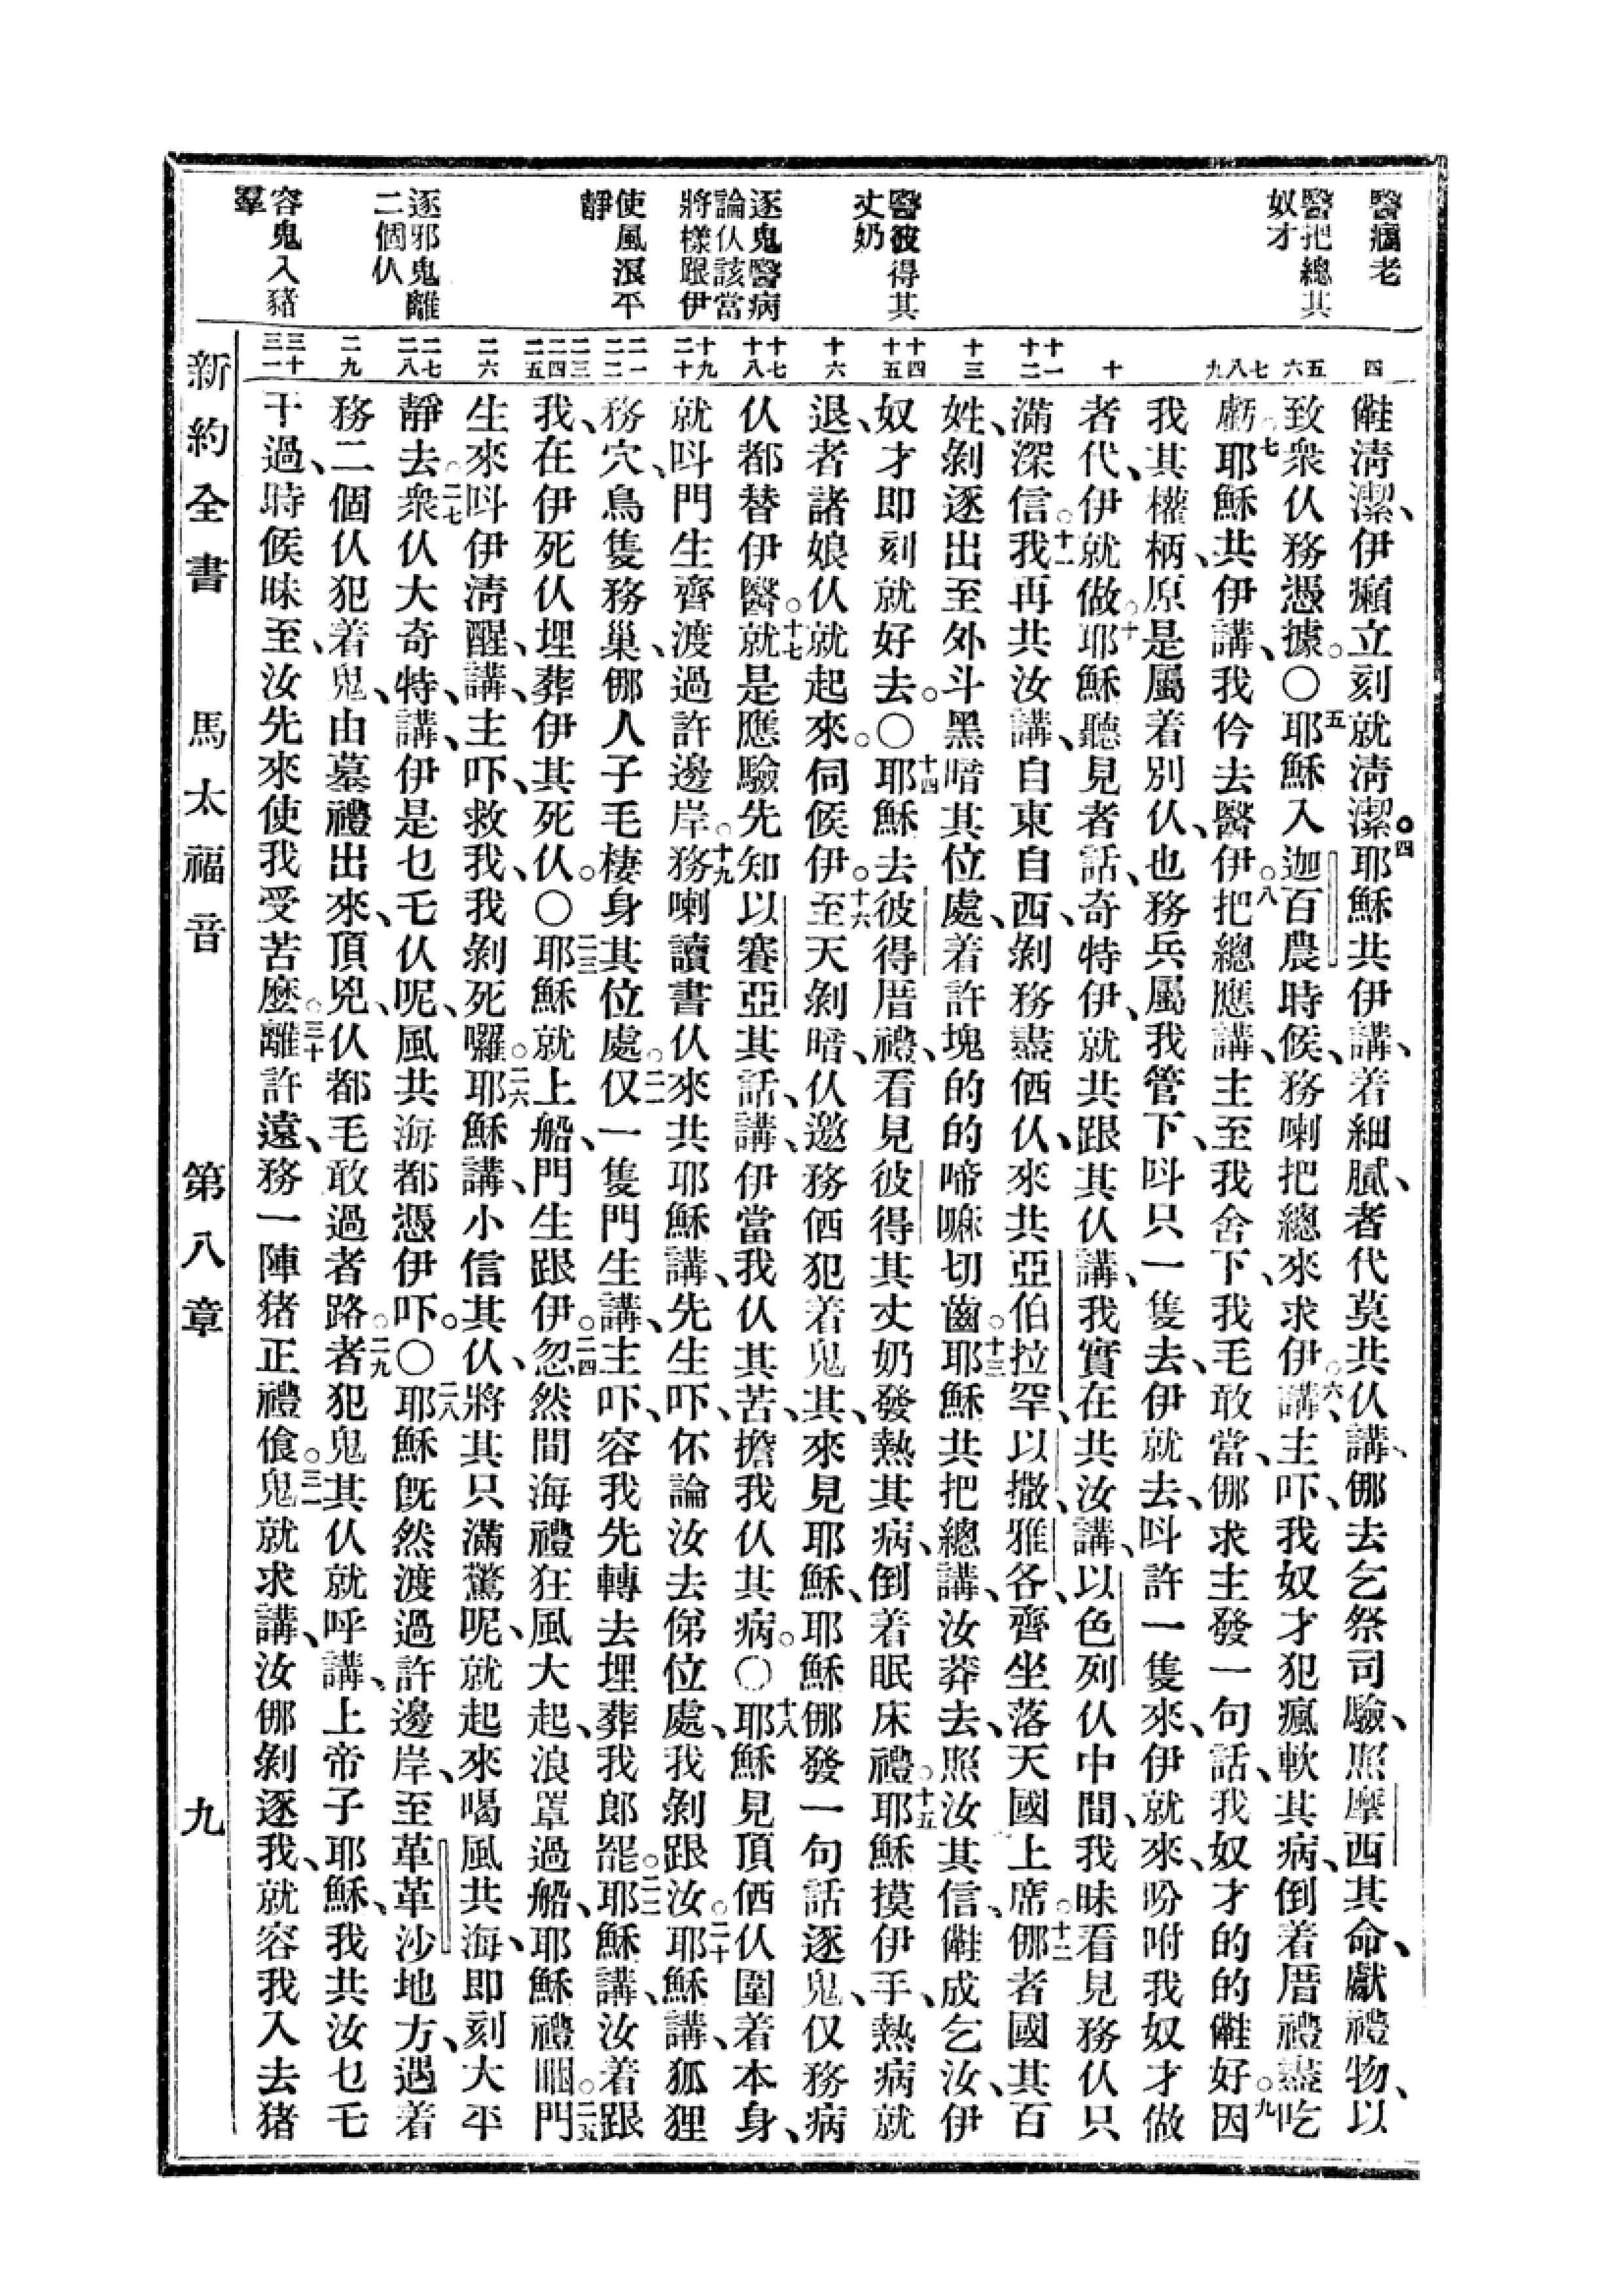 醫癘老
醫把總其
奴才
醫彼得其
丈奶
逐鬼醫病
論仈該當
將樣跟伊
使風浪平
靜
逐邪鬼離
二個仈
容鬼入豬
羣
四
五
六
七
八
九
十
十一
十二
十三
十四
十五
十六
十七
十八
十九
二十
二一
二二
二三
二四
二五
二六
二七
二八
二九
三十
三一
清潔、伊癩立刻就淸潔。四耶穌共伊講、着細膩、者代莫共仈講、倻去乞祭司驗、照摩西其命、獻禮物、以
致衆仈務憑據。〇五耶穌入迦百農時候、務喇把總來求伊。六講、主吓、我奴才犯瘋軟其病、倒着厝禮盡吃
虧。七耶穌共伊講、我仱去醫伊。八把總應講、主至我舍下、我毛敢當、倻求主發一句話、我奴才的的好。九因
我其權柄、原是屬着別仈、也務兵屬我管下、呌只一隻去、伊就去、呌許一隻來、伊就來、吩咐我奴才做
者代、伊就做。十耶穌聽見者話、奇特伊、就共跟其仈講、我實在共汝講、以色列仈中間、我昧看見務仈只
滿深信。十一我再共汝講、自東自西、剝務盡仈、來共亞伯拉罕、以撒、雅各、齊坐落天國上席。十二倻者國其百
姓、剝逐出至外斗黑暗其位處、着許塊的的啼嘛切齒。十三耶穌共把總講、汝莽去、照汝其信、成乞汝、伊
奴才即刻就好去。〇十四耶穌去彼得厝禮、看見彼得其丈奶發熱其病、倒着眠床禮。十五耶穌摸伊手、熱病就
退、者諸娘仈就起來。伺候伊。十六至天剝暗、仈邀務犯着鬼其、來見耶穌、耶穌倻發一句話逐鬼、仅務病
仈都替伊醫。十七就是應驗先知以賽亞其話、講、伊當我仈其苦、擔我仈其病。〇十八耶穌見頂仈圍着本身、
就呌門生齊渡過許邊岸。十九務喇讀書仈來共耶穌講、先生吓、伓論汝去位處、我剝跟汝。二十耶穌講、狐狸
務穴、鳥隻務巢、倻人子毛棲身其位處。二一仅一隻門生講、主吓、容我先轉去埋葬我郎罷。二二耶穌講、汝着跟
我、在伊死仈埋葬伊其死仈。〇二三耶穌就上船、門生跟伊。二四忽然間海禮狂風大起、浪罩過船、耶穌禮㘈。二五門
生來呌伊淸醒、講、主吓、救我、我剝死囉。二六耶穌講、小信其仈、將其只滿驚呢、就起來喝風共海、即刻大平
靜去。二七衆仈大奇特、講、伊是乜乇仈呢、風共海都憑伊吓。〇二八耶穌旣然渡過許邊岸、至革革沙地方、遇着
務二個仈犯着鬼、由墓禮出來、頂兇、仈都毛敢過者路。二九者犯鬼其仈就呼講、上帝子耶穌、我共汝乜乇
干過、時候昧至、汝先來使我受苦麽。三十離許遠、務一陣猪正禮飧。三一鬼就求講、汝倻剝逐我、就容我入去猪
新約全書　馬太福音　第八章　九